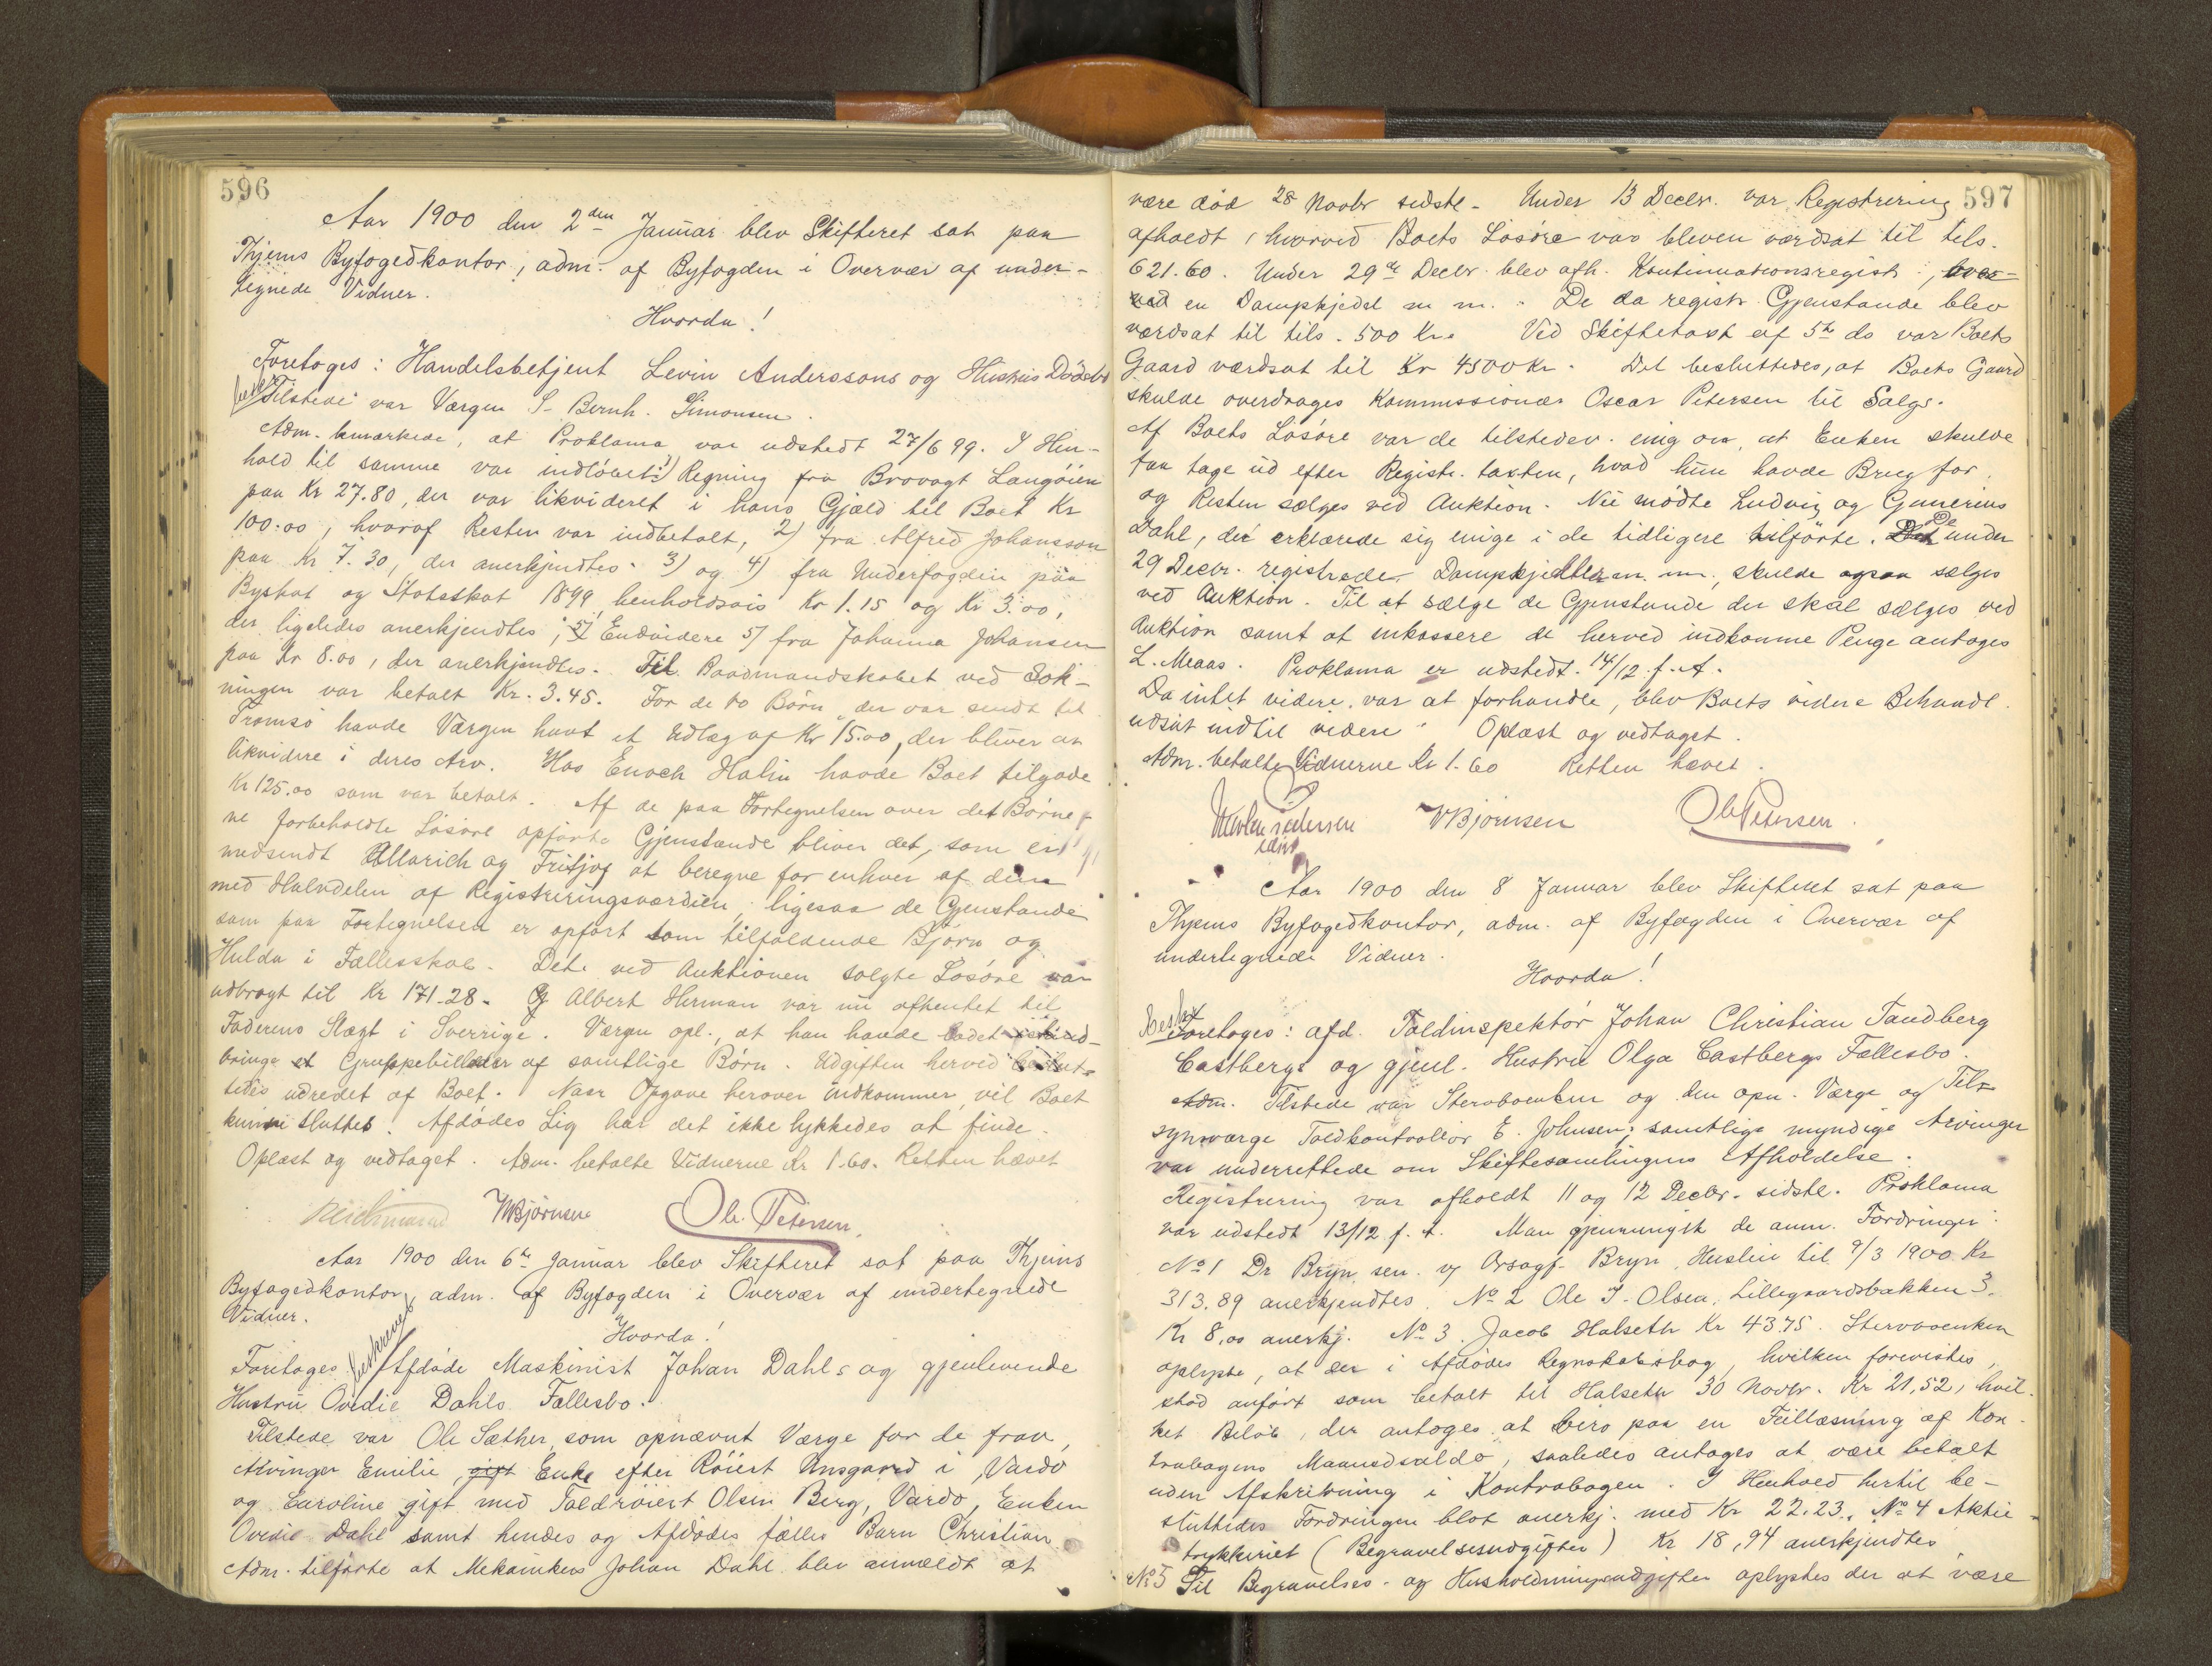 596
Aar 1900 den 2den Januar blev Skifteret sat paa
Thjems Byfogedkontor, adm. af Byfogden i Overvær af under-
tegnede Vidner.
Hvorda!
Foretoges: Handelsbetjent Levin Anderssons og Hustrus Dødsbo
Tilstede var Værgen S. Bernh. Simonsen.
Adm. bemærkede, at Proklama var udstedt 27/6 99. I Hen-
hold til samme var indløbet: 1) Regning fra Brovagt Langöien
paa Kr 27.80, der var likvideret i hans Gjæld til Boet Kr
100.00, hvoraf Resten var indbetalt, 2) fra Alfred Johansson
paa Kr 7.30, der anerkjendtes. 3) og 4) fra Underfogden paa
Byskat og Statsskat 1899 henholdsvis Kr 1.15 og Kr 3.00,
der ligeledes anerkjendtes; Endvidere 5) fra Johanna Johansen
paa Kr 8.00, der anerkjendtes. Til Baadmandskabet ved Sok-
ningen var betalt Kr. 3.45. For de to Børn, der var sendt til
Tromsö havde Værgen havt et Udlæg af Kr 15.00, der bliver at
likvidere i deres Arv. Hos Enoch Halin havde Boet tilgode
Kr 125.00 som var betalt. Af de paa Fortegnelsen over det Børne-
ne forbeholdte Løsøre opførte Gjenstande bliver det, som er
medsendt Allarich og Fritjof at beregne for enhver af dem
med Halvdelen af Registreringsværdien, ligesaa de Gjenstande
som paa Fortegnelsen er opført som tilfaldende Bjørn og
Hulda i Fællesskab. Det ved Auktionen solgte Løsøre var
udbragt til Kr 171.28. Albert Herman var nu afhentet til
Faderens Slægt i Sverrige. Værgen opl., at han havde ladet
bringe et Gruppebilleder af samtlige Børn. Udgiften herved beslut-
tedes udredet af Boet. Naar Opgave herover indkommer, vil Boet
kunne sluttes. Afdødes Lig har det ikke lykkedes at finde.
Oplæst og vedtaget. Adm. betalte Vidnerne Kr 1.60. Retten hævet
Bjørnsen Ole Petersen.
Aar 1900 den 6te Januar blev Skifteret sat paa Thjems
Byfogedkontor, adm. af Byfogden i Overvær af undertegnede
Vidner.
Hvorda!
Foretoges beskrevet Afdøde Maskinist Johan Dahls og gjenlevende
Hustru Ovidie Dahls Fællesbo.
Tilstede var Ole Sæther som opnævnt Værge for de frav.
Arvinger Emilie, gift Enke efter Röiert Ansgaard i Vardø
og Caroline gift med Toldröiert Olsen Berg, Vardø, Enken
Ovidie Dahl samt hendes og Afdødes fælles Barn Christian.
Adm. tilførte at Mekanikus Johan Dahl blev anmeldt at
597
være død 28 Novbr sidstl. Under 13 Decbr. var Registrering
afholdt, hvorved Boets Løsøre var bleven værdsat til tils.
621.60. Under 29de Decbr. blev afh. Kontinuationsregistr., hvor-
ved en Dampkjedel m m. De da registr. Gjenstande blev
værdsat til tils. 500 Kr. Ved Skiftetaxt af 5te ds var Boets
Gaard værdsat til Kr 4500 kr. Det besluttedes, at Boets Gaard
skulde overdrages Kommissionær Oscar Petersen til Salgs.
Af Boets Løsøre var de tilstedev. enig om, at Enken skulde
faa tage ud efter Registr. taxten, hvad hun havde Brug for
og Resten sælges ved Auktion. Nu mødte Ludvig og Gunerius
Dahl, der erklærede sig enige i de tidligere tilførte. De under
29 Decbr. registrede Dampkjedler m. m. skulde ogsaa sælges
ved Auktion. Til at sælge de Gjenstande der skal sælges ved
Auktion samt at inkassere de herved indkomne Penge antoges
L. Meaas. Proklama er udstedt 14/12 f. A.
Da intet videre var at forhandle, blev Boets videre Behandl.
udsat indtil videre. Oplæst og vedtaget.
Adm. betalte Vidnerne Kr 1.60 Retten hævet.
Bjørnsen Ole Petersen.
Aar 1900 den 8 Januar blev Skifteret sat paa
Thjems Byfogedkontor, adm. af Byfogden i Overvær af
undertegnede Vidner.
Hvorda!
Foretoges: afd. Toldinspektør Johan Christian Tandberg
Castbergs og gjenl. Hustru Olga Castbergs Fællesbo.
Adm. Tilstede var Stervboenken og den opn. Værge og Til-
synsværge Toldkontrollør E. Johnsen; samtlige myndige Arvinger
var underrettede om Skiftesamlingens Afholdelse.
Registrering var afholdt 11 og 12 Decbr. sidstl. Proklama
var udstedt 13/12 f. A. Man gjennemgik de anm. Fordringer:
No 1 Dr Bryn sen. og Orsagf. Bryn, Husleie til 9/3 1900 Kr
313.89 anerkjendtes. No 2 Ole J. Olsen, Lillegaardsbakken 3.
Kr 8.00 anerkj. No 3. Jacob Halseth Kr 43.75. Stervboenken
oplyste, at der i Afdødes Regnskabsbog, hvilken forevistes,
stod anført som betalt til Halseth 30 Novbr. Kr 21,52, hvil-
ket Beløb, der antoges at bero paa en Feillæsning af Kon-
trabogens Maanedsaldo, saaledes antoges at være betalt
uden Afskrivning i Kontrabogen. I Henhold hertil be-
sluttedes Fordringen blot anerkj. med Kr 22.23. No 4 Aktie-
trykkeriet (Begravelsesudgifter) Kr 18,94 anerkjendtes
No 5 Til Begravelses- og Husholdningsudgifter oplystes der at være